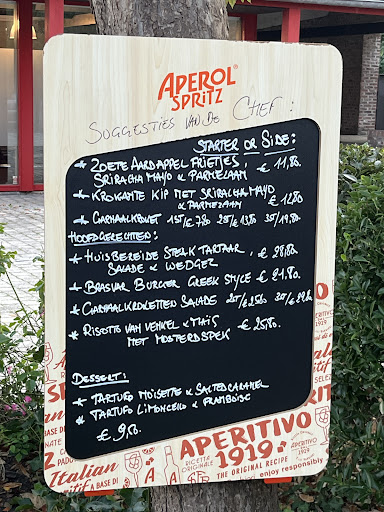 APEROL
SPRITZ
SUGGESTIES VAN DE CHEF:
STARTER OR SIDE:
* ZOETE AARDAPPEL FRIETJES, € 11,80
SRIRACHA MAYO & PARMEZAAN
* KROKANTE KIP MET SRIRACHA MAYO
& PARMEZAAN € 12,80
* GARNAALKROKET 1ST/€7,80 2ST/€13,80 3ST/19,80
HOOFDGERECHTEN:
* HUISBEREIDE STEAK TARTAAR, € 28,80
SALADE & WEDGES
* BASVAR BURGER GREEK STYLE € 21.80.
* GARNAALKROKETTEN SALADE 2ST/€ 3ST/€
* RISOTTO VAN VENKEL & MAÏS € 25,80.
MET MOSTERDSPEK
DESSERT:
* TARTUFO NOISETTE & SALTED CARAMEL
* TARTUFO LIMONCELLO & FRAMBOISE
€ 9,50.
APERITIVO
1919
Italian
BASE DI
RICETTA
ORIGINALE
APERITIVO
1919
THE ORIGINAL RECIPE
enjoy responsibly